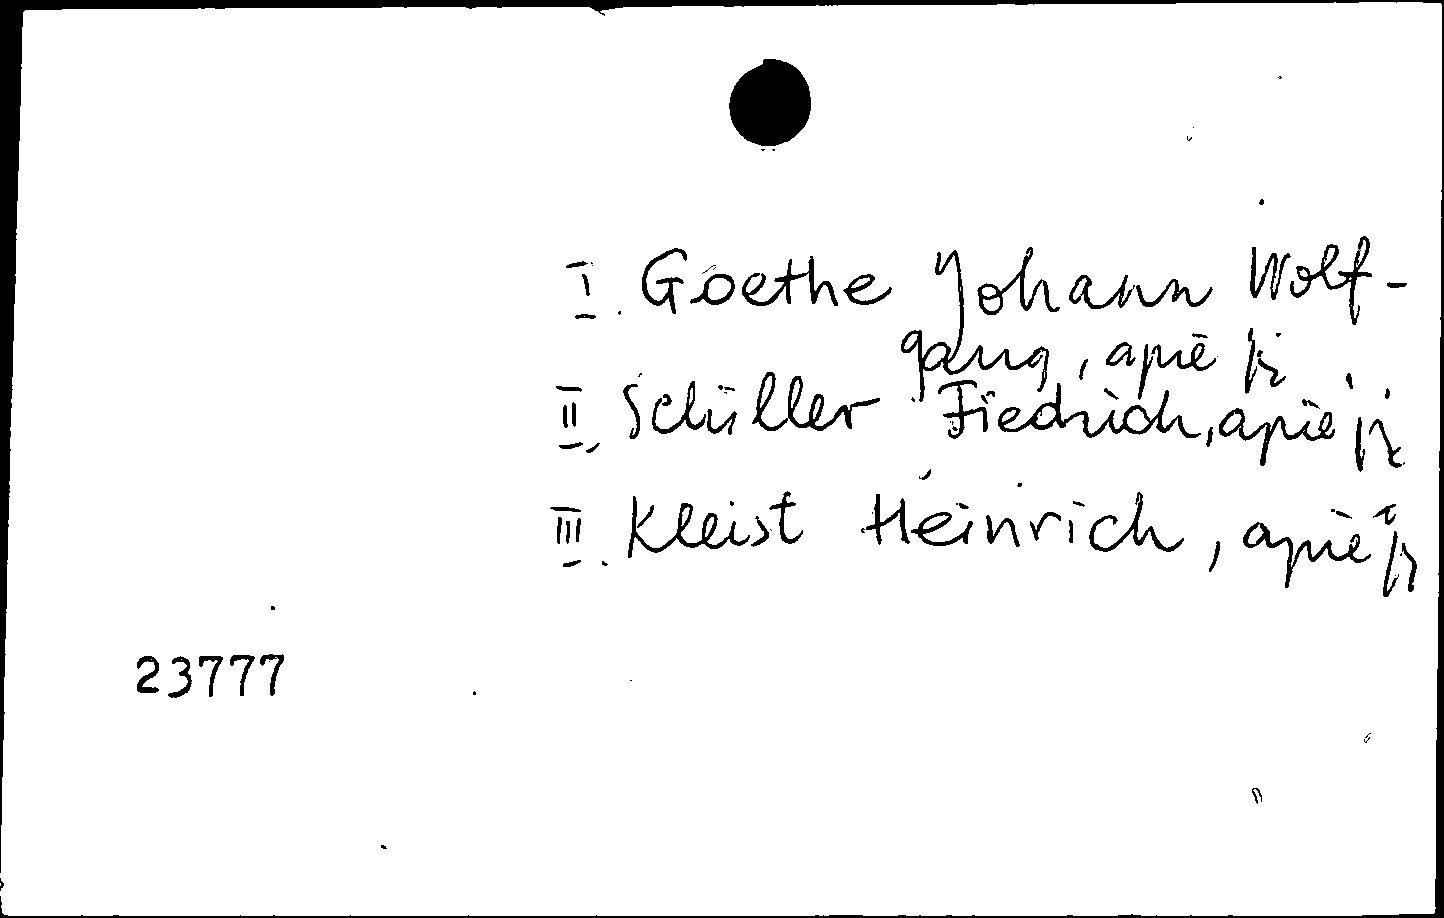 I. Goethe Johann Wolf-
gang, apie jį
II. Schiller Fiedrich, apie jį
III. Kleist Heinrich, apie jį
23777